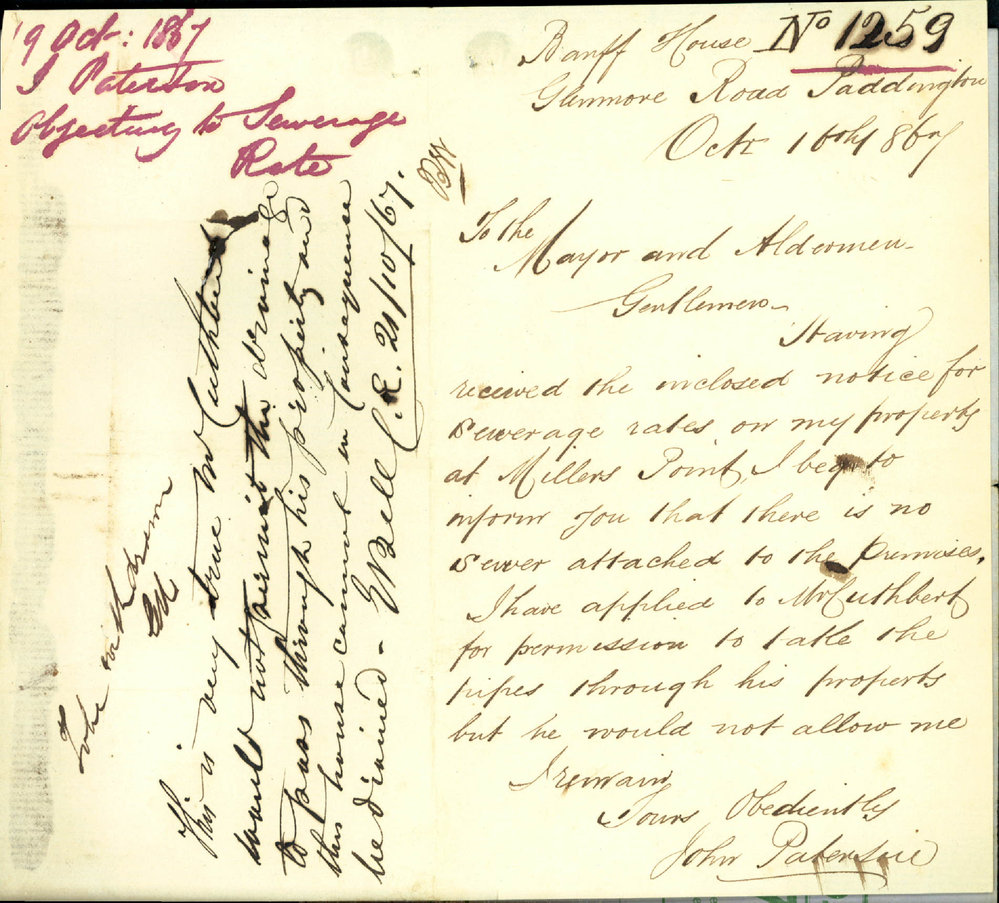 19 Oct: 1867
J Paterson
Objecting to Sewerage
Rate
No 1259
Banff House
Glenmore Road Paddington
Octr 16th 1867
To the
Mayor and Aldermen
Gentlemen
Having
received the inclosed notice for
sewerage rates on my property
at Millers Point, I beg to
inform you that there is no
sewer attached to the Premises.
I have applied to Mr Cuthbert
for permission to take the
pipes through his property
but he would not allow me
I remain
Yours Obediently
John Paterson
This is very true Mr Cuthbert
would not permit the drainage
to pass through his property and
this house cannot in consequence
be drained - W Bell C.E. 21/10/67.
To be withdrawn